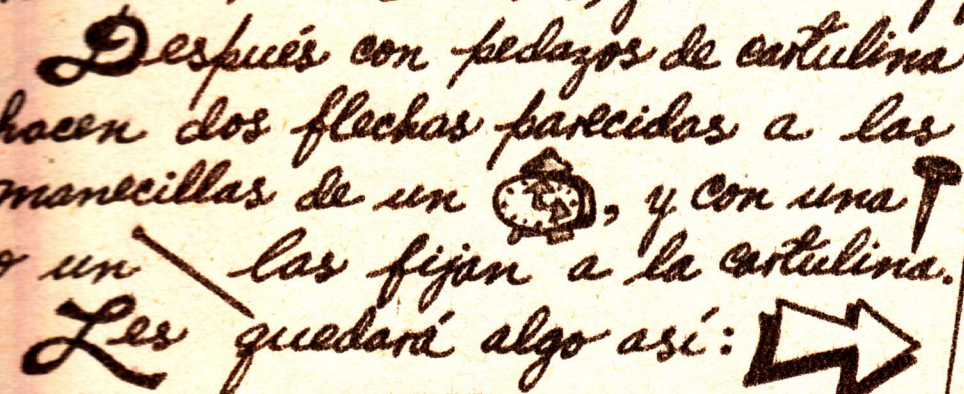 Después con pedazos de cartulina
hacen dos flechas parecidas a las
manecillas de un , y con una
o un las fijan a la cartulina.
Les quedará algo así: